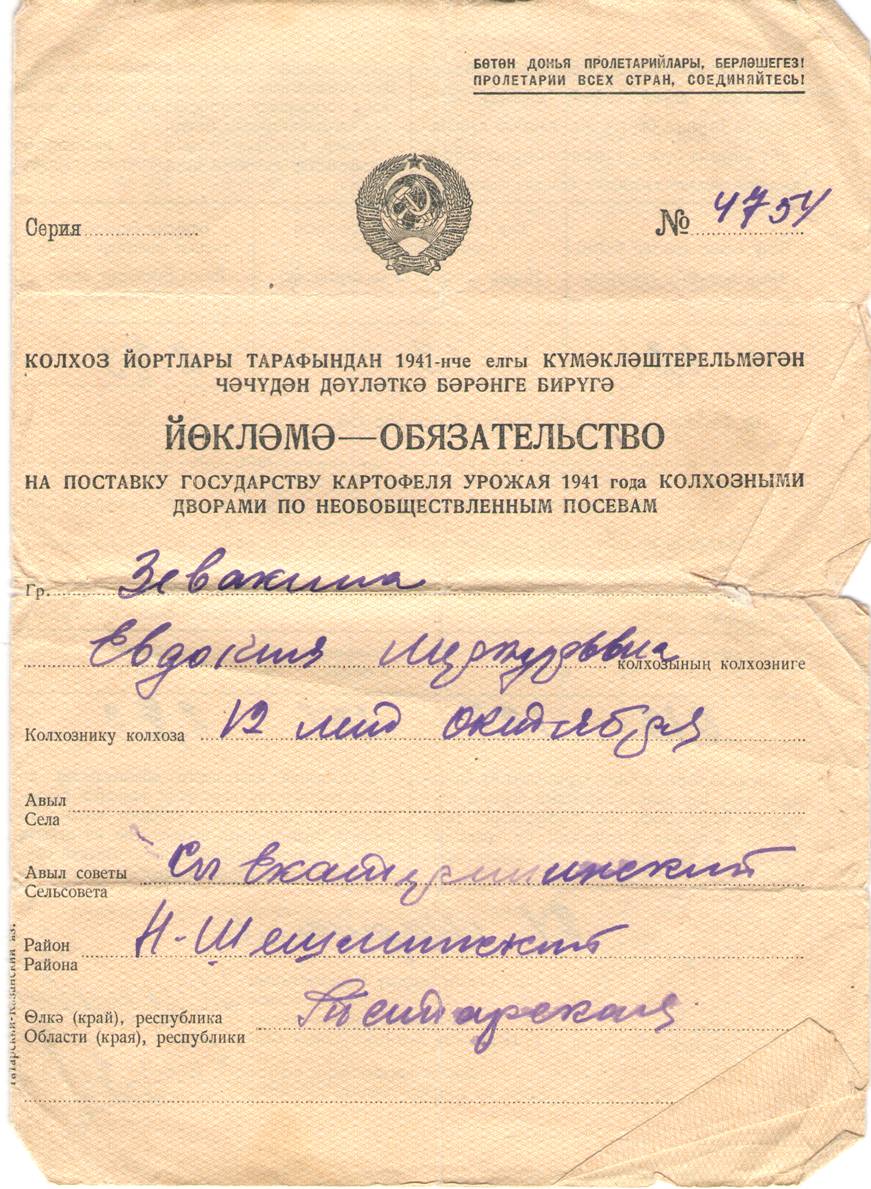 БӨТӨН ДОНЬЯ ПРОЛЕТАРИЙЛАРЫ, БЕРЛӘШЕГЕЗ!
ПРОЛЕТАРИИ ВСЕХ СТРАН, СОЕДИНЯЙТЕСЬ!
Серия
№ 4754
КОЛХОЗ ЙОРТЛАРЫ ТАРАФЫНДАН 1941-нче елгы КҮМӘКЛӘШТЕРЕЛЬМӘГӘН
ЧӘЧҮДӘН ДӘҮЛӘТКӘ БӘРӘНГЕ БИРҮГӘ
ЙӨКЛӘМӘ—ОБЯЗАТЕЛЬСТВО
НА ПОСТАВКУ ГОСУДАРСТВУ КАРТОФЕЛЯ УРОЖАЯ 1941 года КОЛХОЗНЫМИ
ДВОРАМИ ПО НЕОБОБЩЕСТВЛЕННЫМ ПОСЕВАМ
Гр. Зевакина
Евдокия колхозының колхозниге
Колхознику колхоза 12 лет октября
Авыл
Села
Авыл советы
Сельсовета
Район Н-Шешминский
Района
Өлкә (край), республика Татарская
Области (края), республики